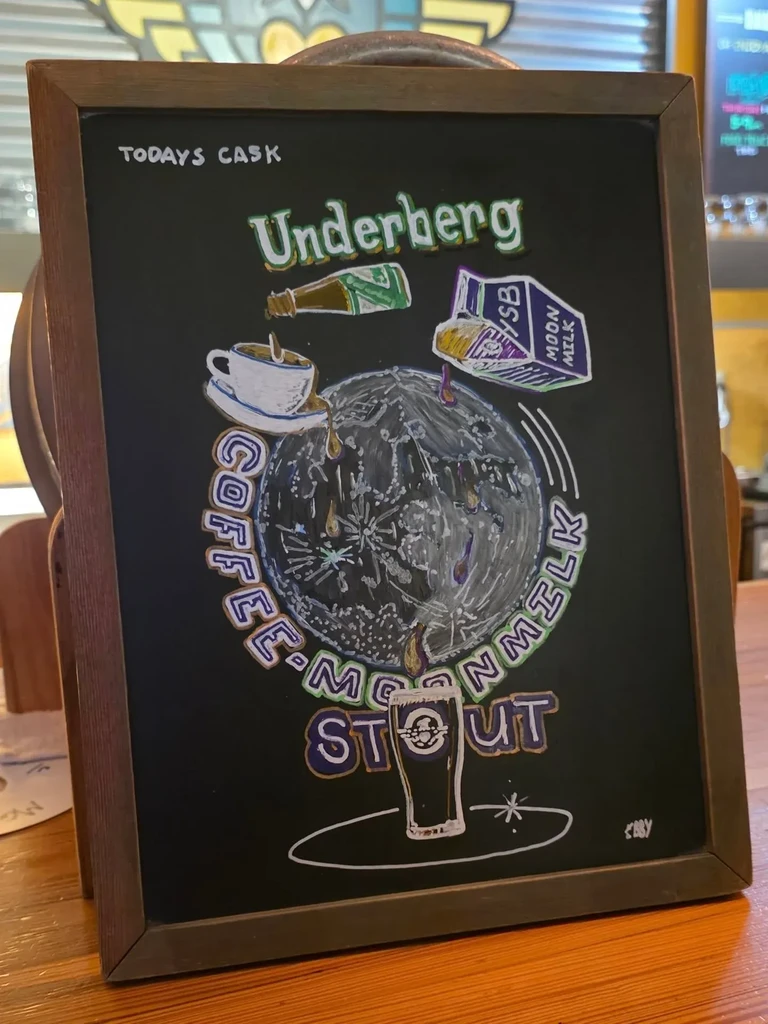 TODAYS CASK
Underberg
YSB
MOON
MILK
COFFEE-MOONMILK
STOUT